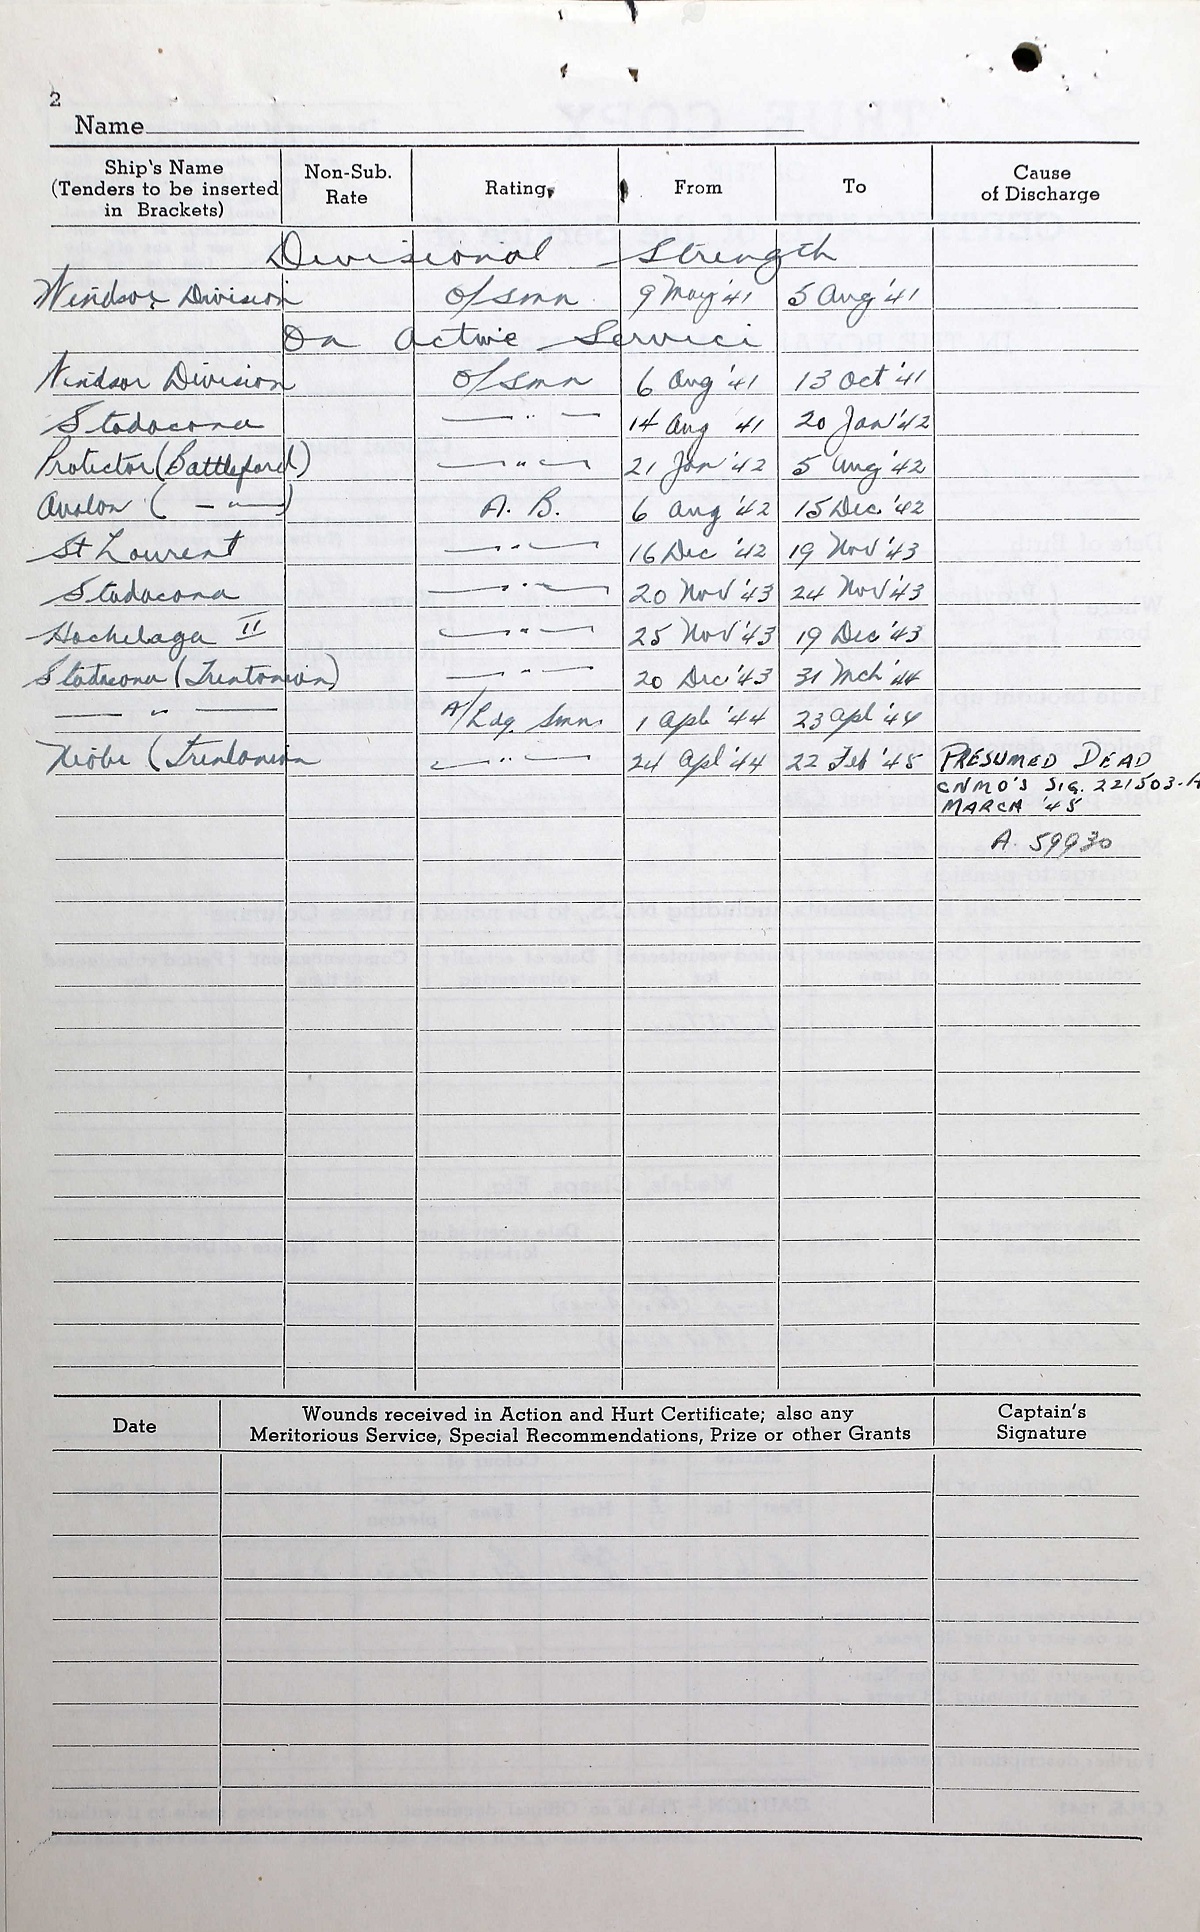 2
Name
Ship's Name (Tenders to be inserted in Brackets) Non-Sub. Rate Rating From To Cause of Discharge
Divisional Strength
Windsor Division O/Smn 9 May '41 5 Aug '41
On Active Service
Windsor Division O/Smn 6 Aug '41 13 Oct '41
Stadacona — " — 14 Aug 41 20 Jan '42
Protector (Battleford) — " — 21 Jan '42 5 Aug '42
Avalon ( — " — ) A. B. 6 Aug '42 15 Dec. '42
St Laurent — " — 16 Dec '42 19 Nov '43
Stadacona — " — 20 Nov '43 24 Nov '43
Hochelaga II — " — 25 Nov '43 19 Dec '43
Stadacona (Trentonian) — " — 20 Dec '43 31 Mch '44
— " — A/Ldg. Smn. 1 Apl '44 23 Apl '44
Niobe (Trentonian — " — 24 Apl '44 22 Feb '45 PRESUMED DEAD
CNMO'S SIG. 221503-A
MARCH '45
A. 59930
Date Wounds received in Action and Hurt Certificate; also any Meritorious Service, Special Recommendations, Prize or other Grants Captain's Signature